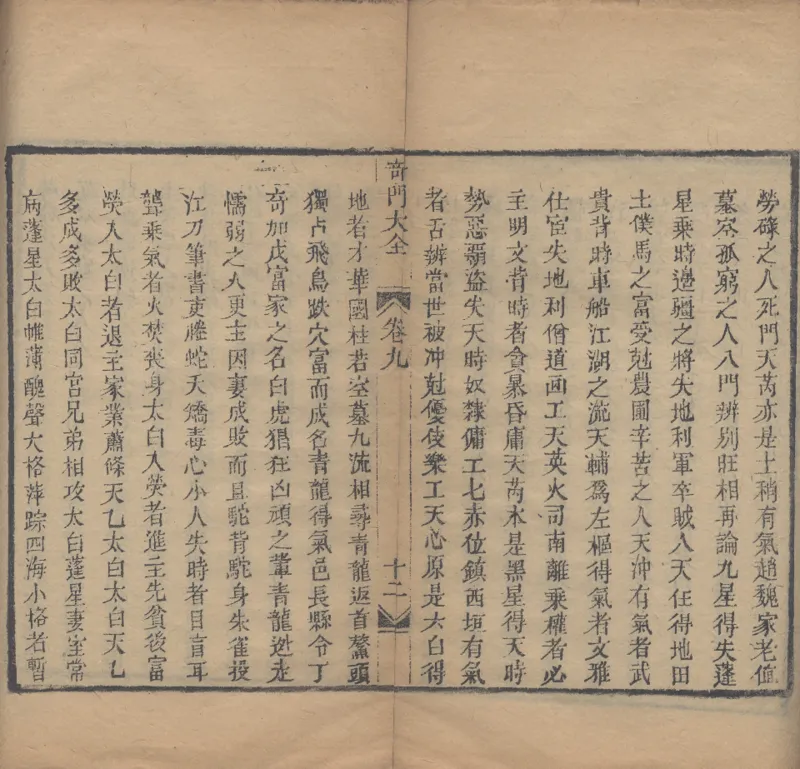 勞碌之人死門天芮亦是土稍有氣趙魏家老值
墓空孤窮之人八門辨別旺相再論九星得失蓬
星乘時邊疆之將失地利軍卒賊人天任得地田
土僕馬之富受尅農圃辛苦之人天沖有氣者武
貴背時車船江湖之流天輔爲左樞得氣者文雅
仕宦失地利僧道画工天英火司南離乘權者必
主明文背時者貪暴昏庸天芮水是黑星得天時
勢惡霸盜失天時奴隸傭工七赤位鎮西垣有氣
者舌辨當世被冲尅優伎樂工天心原是太白得
奇門大全 卷九 十二
地者才華國柱若空墓九流相尋青龍返首鰲頭
獨占飛鳥跌穴富而成名青龍得氣邑長縣令丁
奇加戊富家之名白虎猖狂凶頑之輩青龍迯走
懦弱之人更主因妻成敗而且駝背駝身朱雀投
江刀筆書吏螣蛇夭矯毒心小人失時者目盲耳
聾乘氣者火焚喪身太白入熒者進主先貧後富
熒入太白者退主家業蕭條天乙太白太白天乙
多成多敗太白同宮兄弟相攻太白蓬星妻室常
病蓬星太白帷薄醜聲大格萍踪四海小格者暫